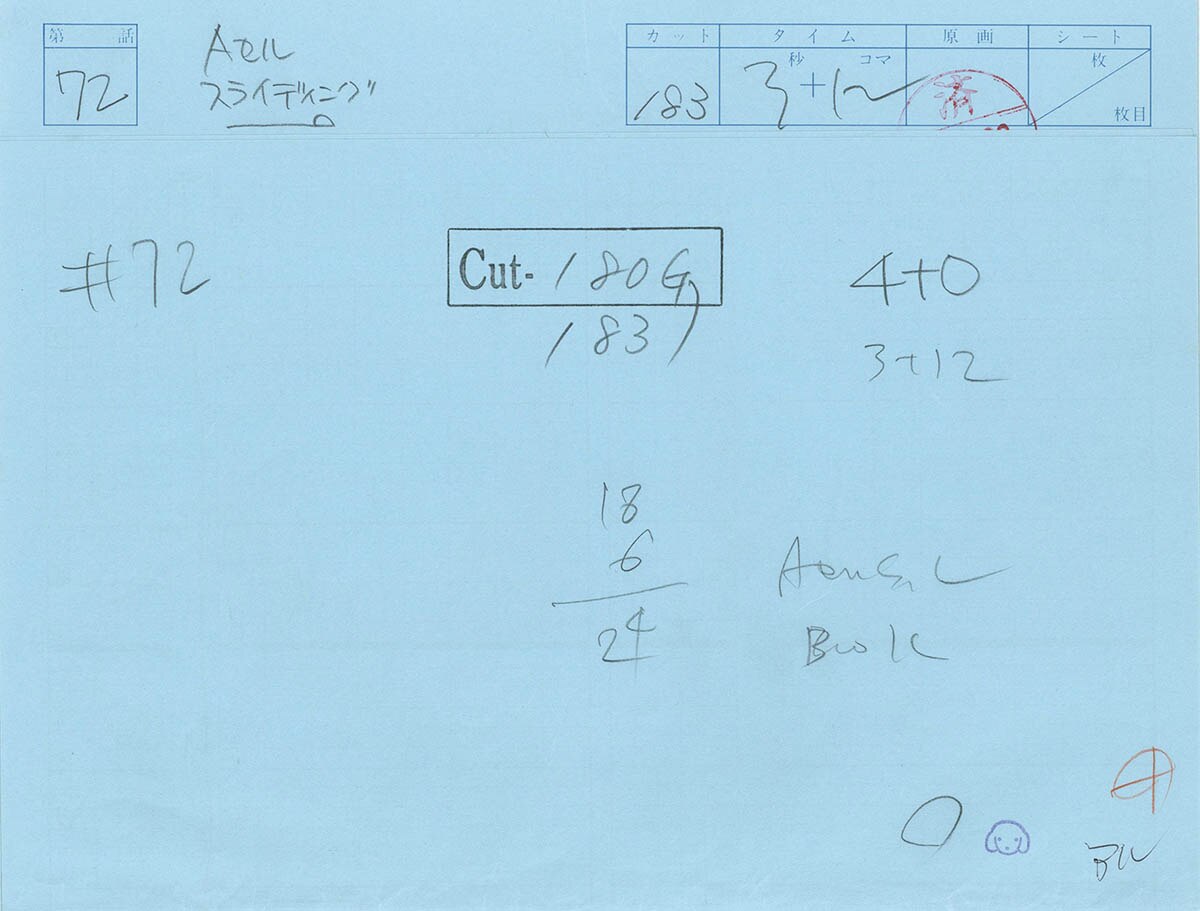 第 話
72
Aセル
スライディング
カット タイム 原画 シート
183 秒 コマ 3+12 済 枚 枚目
#72
Cut- 180G
183
4+0
3+12
18
6
24
Book